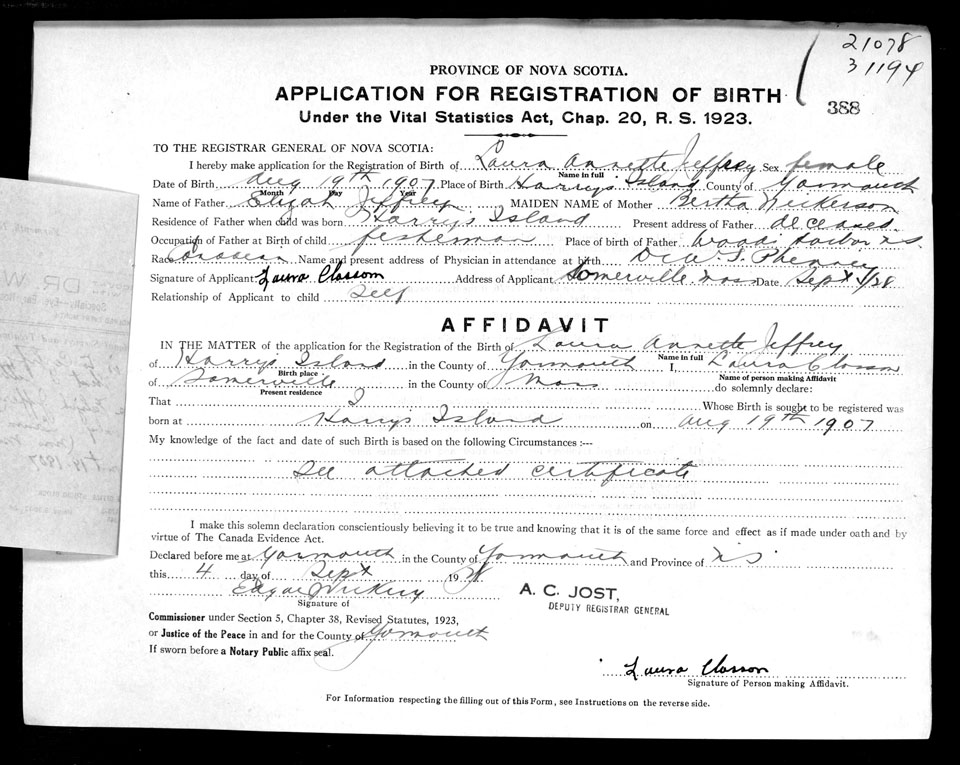 21078
31194
388
PROVINCE OF NOVA SCOTIA.
APPLICATION FOR REGISTRATION OF BIRTH
Under the Vital Statistics Act, Chap. 20, R. S. 1923.
TO THE REGISTRAR GENERAL OF NOVA SCOTIA:
I hereby make application for the Registration of Birth of Laura Annette Jeffrey Sex female
Name in full
Date of Birth Aug 19th 1907 Place of Birth Harrys Island County of Yarmouth
Month Day Year
Name of Father Elijah Jeffrey MAIDEN NAME of Mother Bertha Nickerson
Residence of Father when child was born Harrys Island Present address of Father deceased
Occupation of Father at Birth of child fisherman Place of birth of Father Woods Harbor N S
Race Name and present address of Physician in attendance at birth
Signature of Applicant Laura Closson Address of Applicant Somerville Mass Date Sept 4/28
Relationship of Applicant to child Self
AFFIDAVIT
IN THE MATTER of the application for the Registration of the Birth of Laura Annette Jeffrey
Name in full
of Harrys Island in the County of Yarmouth I, Laura Closson
Birth place Name of person making Affidavit
of Somerville in the County of Mass do solemnly declare:
Present residence
That I Whose Birth is sought to be registered was
born at Harrys Island on Aug 19th 1907
My knowledge of the fact and date of such Birth is based on the following Circumstances :---
See attached certificate
I make this solemn declaration conscientiously believing it to be true and knowing that it is of the same force and effect as if made under oath and by
virtue of The Canada Evidence Act.
Declared before me at Yarmouth in the County of Yarmouth and Province of N S
this 4 day of Sept 1928
A. C. JOST,
DEPUTY REGISTRAR GENERAL
Edgar
Signature of
Commissioner under Section 5, Chapter 38, Revised Statutes, 1923,
or Justice of the Peace in and for the County of Yarmouth
If sworn before a Notary Public affix seal.
Laura Closson
Signature of Person making Affidavit.
For Information respecting the filling out of this Form, see Instructions on the reverse side.